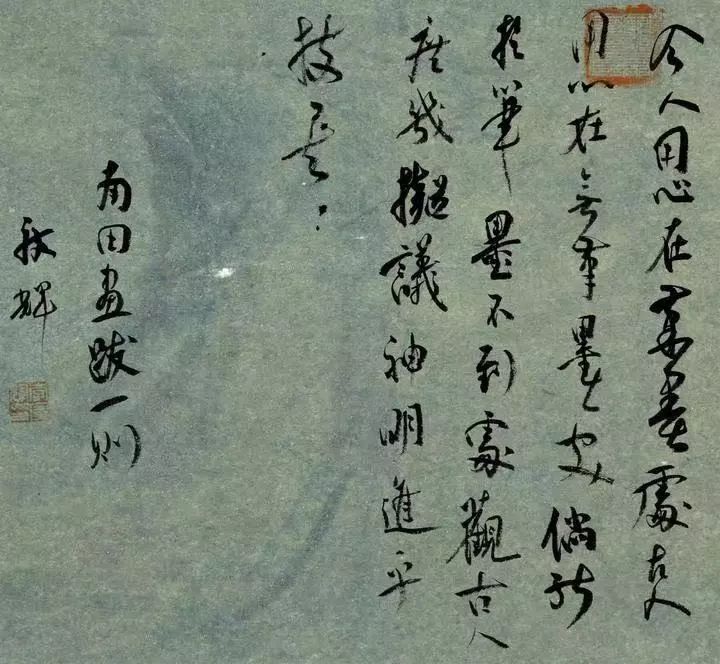 今人用心在處古人
用心在無筆墨處倘能
於筆墨不到處觀古人
庶幾擬議神明進乎
技矣
南田畫跋一則
輝